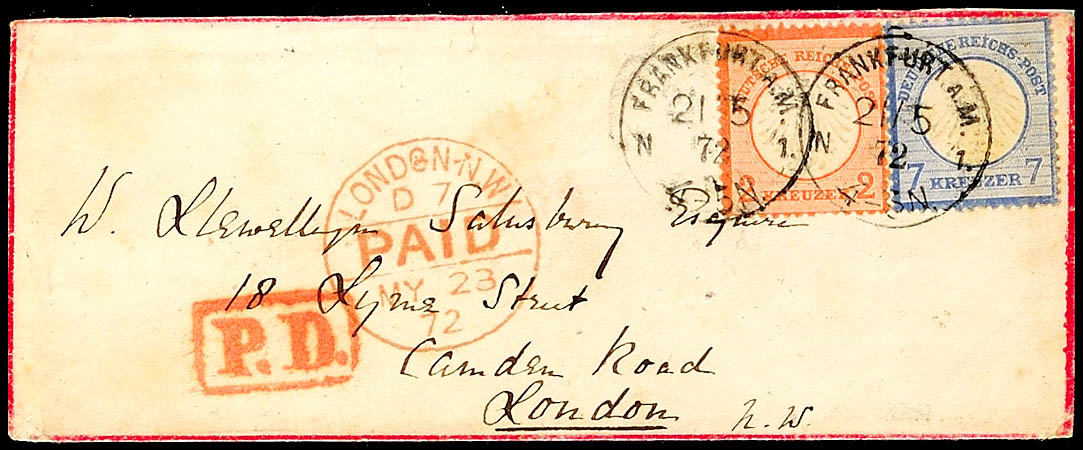 FRANKFURT A.M.
21/5
72
N 1.
DEUTSCHE REICHS-POST
2 2
KREUZER
FRANKFURT A.M.
21/5
72
N 1.
4-5N.
DEUTSCHE REICHS-POST
7 7
KREUZER
LONDON-N.W
D 7
PAID
MY 23
72
W. Llewellyn Salusbury Esquire
18 Lyme Street
Camden Road
London N.W.
P.D.